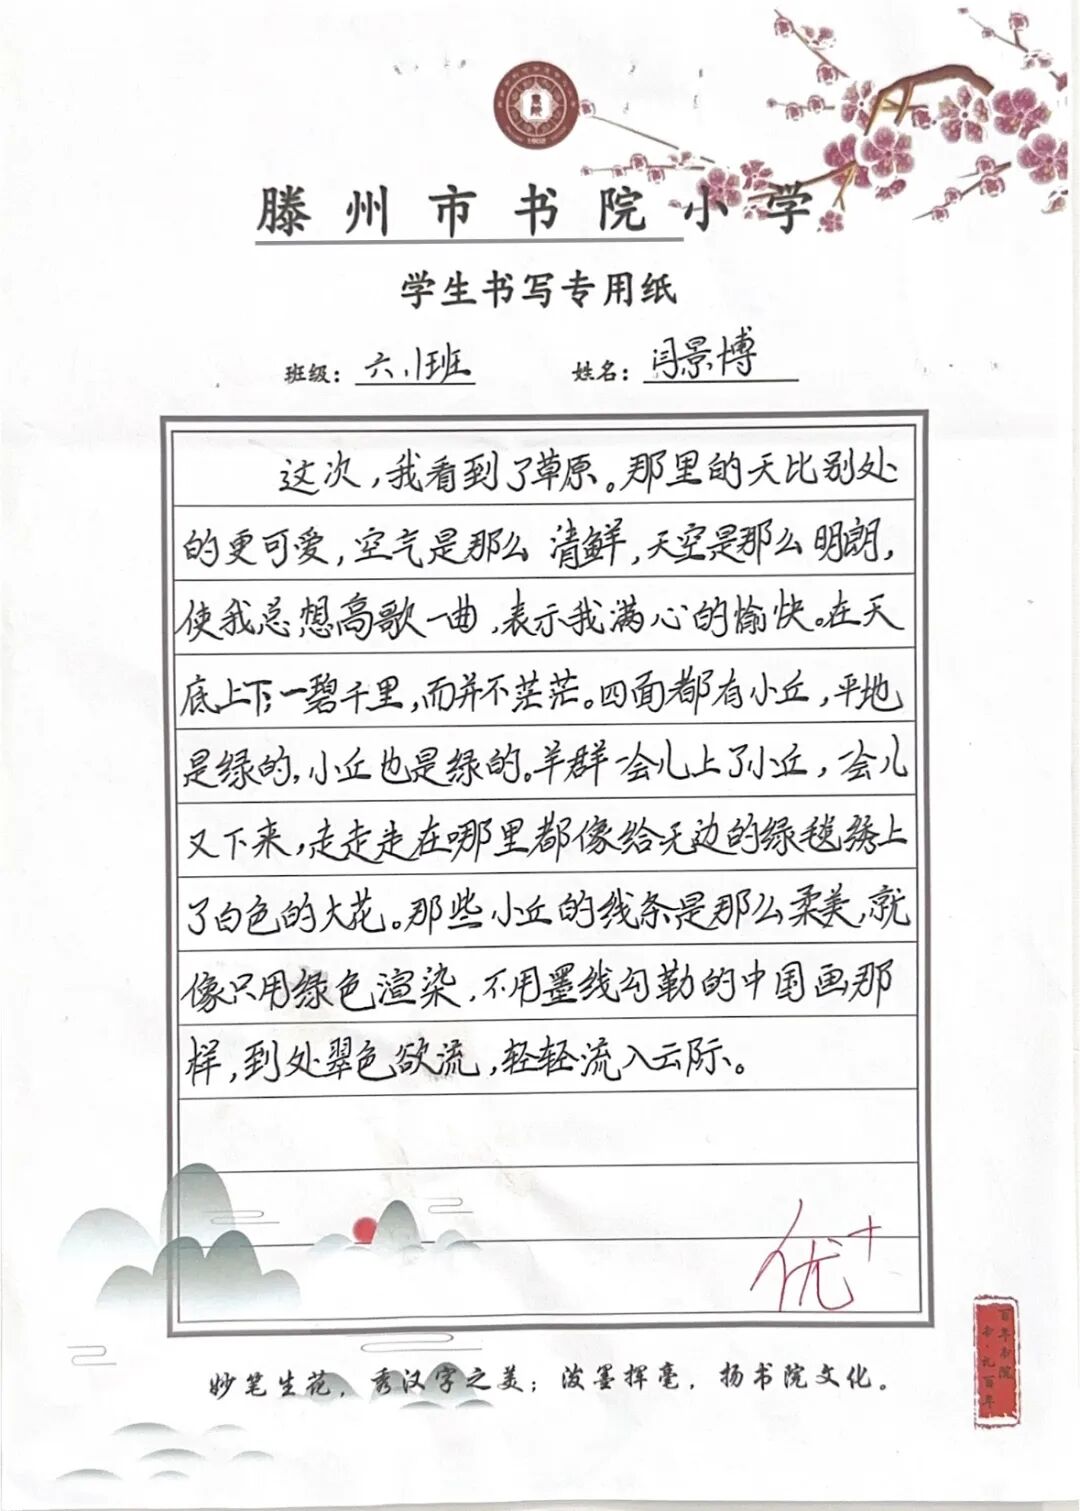 1902
滕州市书院小学
学生书写专用纸
班级：六.1班 姓名：闫景博
这次，我看到了草原。那里的天比别处
的更可爱，空气是那么 清鲜，天空是那么 明朗，
使我总想高歌一曲，表示我满心的愉快。在天
底上下，一碧千里，而并不茫茫。四面都有小丘，平地
是绿的，小丘也是绿的。羊群一会儿上了小丘，一会儿
又下来，走走走在哪里都像给无边的绿毯绣上
了白色的大花。那些小丘的线条是那么柔美，就
像只用绿色渲染，不用墨线勾勒的中国画那
样，到处翠色欲流，轻轻流入云际。
优+
妙笔生花，秀汉字之美；泼墨挥毫，扬书院文化。